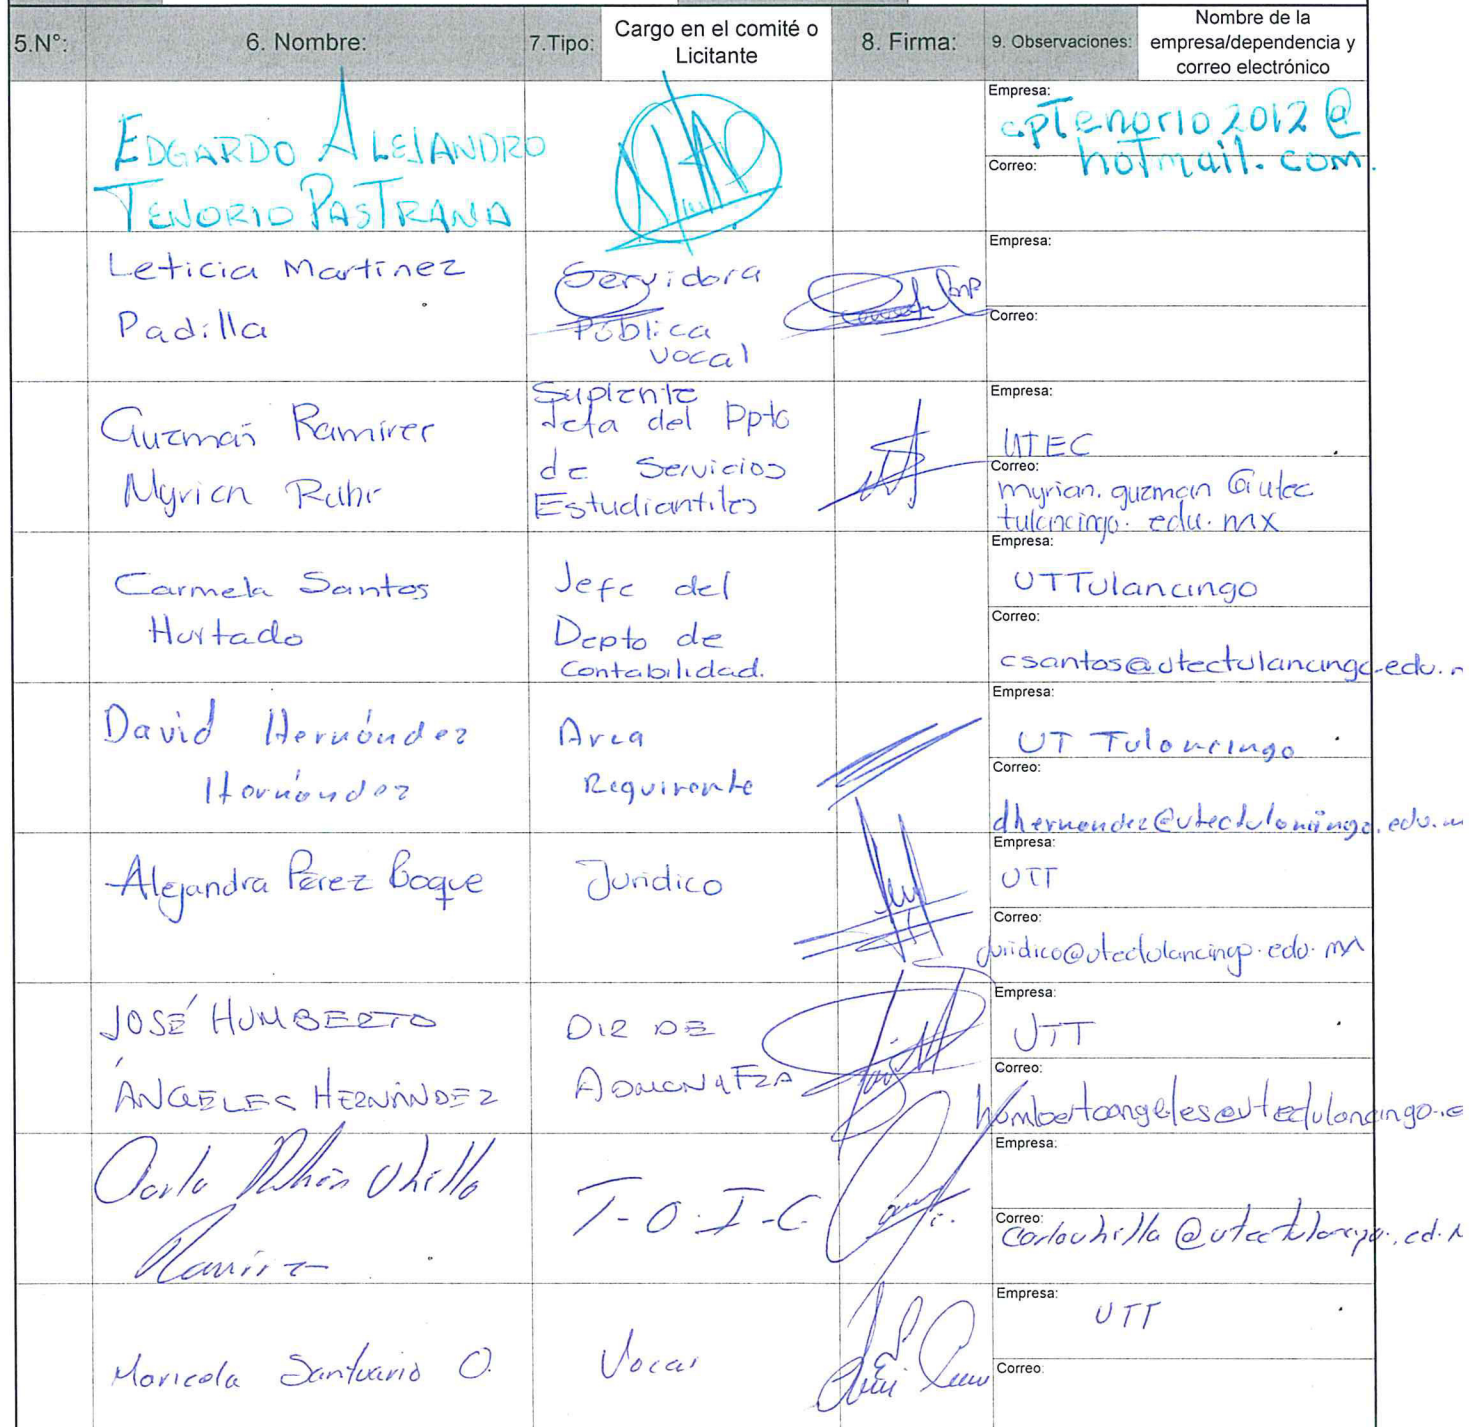 5.N°: 6. Nombre: 7.Tipo: Cargo en el comité o Licitante 8. Firma: 9. Observaciones: Nombre de la empresa/dependencia y correo electrónico
EDGARDO ALEJANDRO
TENORIO PASTRANA
Empresa:
cptenorio2012@
Correo: hotmail.com.
Leticia Martínez
Padilla
Servidora
Pública
vocal
Empresa:
Correo:
Guzmán Ramírez
Myrian Ruhr
Suplente
Jefa del Dpto
de Servicios
Estudiantiles
Empresa:
UTEC
Correo:
myrian.guzman@utec
tulancingo.edu.mx
Carmela Santos
Hurtado
Jefe del
Depto de
Contabilidad.
Empresa:
UTTulancingo
Correo:
csantos@utectulancingo.edu.
David Hernández
Hernández
Area
Requirente
Empresa:
UT Tulancingo
Correo:
dhernandez@utectulancingo.edu.
Alejandra Pérez Roque
Jurídico
Empresa:
UTT
Correo:
juridico@utectulancingo.edu.mx
JOSÉ HUMBERTO
ÁNGELES HERNÁNDEZ
DIR DE
ADMON Y FZA
Empresa:
UTT
Correo:
humbertoangeles@utectulancingo.e
Ramírez
T-O-I-C
Empresa:
Correo:
Maricela Santuario O.
Vocal
Empresa:
UTT
Correo: